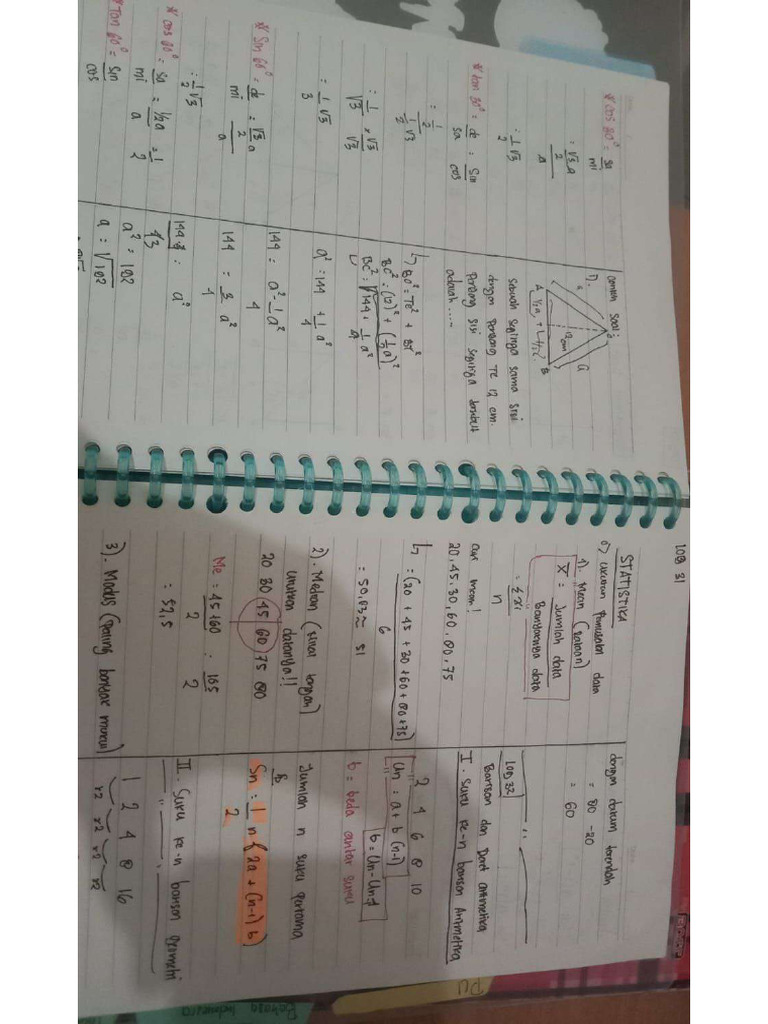 * cos 30° = sa
mi
= √3 a
2
a
= 1 √3
2
* tan 30° = de = sin
sa cos
= 1
2
1 √3
2
= 1 × √3
√3 √3
= 1 √3
3
* Sin 60° = de = √3 a
mi 2
a
= 1 √3
2
* cos 60° = sa = 1/2 a = 1
mi a 2
* Tan 60° = sin
cos
contoh soal :
1).
a
12 cm
A
B
sebuah segitiga sama sisi
dengan panjang TC 12 cm.
Panjang sisi segitiga tersebut
adalah ....
BC² = (12)² + (1/2 a)²
BC² = √144 + 1 a²
4
a² = 144 + 1 a²
4
144 = a² - 1 a²
4
144 = 3 a²
4
a² = 192
a = √192
LOG 31
STATISTIKA
a) ukuran pemusatan data
1). Mean (rataan)
X̄ = Jumlah data
Banyaknya data
= Σxi
n
cari mean!
20, 45, 30, 60, 80, 75
↳ = (20 + 45 + 30 + 60 + 80 + 75)
6
= 50,83 ≈ 51
2). Median (nilai tengah)
urutkan datanya!!
20 30 45 60 75 80
Me = 45+60 = 105
2 2
= 52,5
3). Modus (paling banyak muncul)
dengan datum terendah
= 80 - 20
= 60
LOG 32
Barisan dan Deret aritmetika
I. Suku ke-n barisan Aritmetika
2 4 6 8 10
Un = a + b (n-1)
b = Un - Un-1
b = beda antar suku
Jumlah n suku pertama
Sn = 1 n { 2a + (n-1) b }
2
II. Suku ke-n barisan geometri
1 2 4 8 16
x2 x2 x2 x2
Bahasa Indonesia